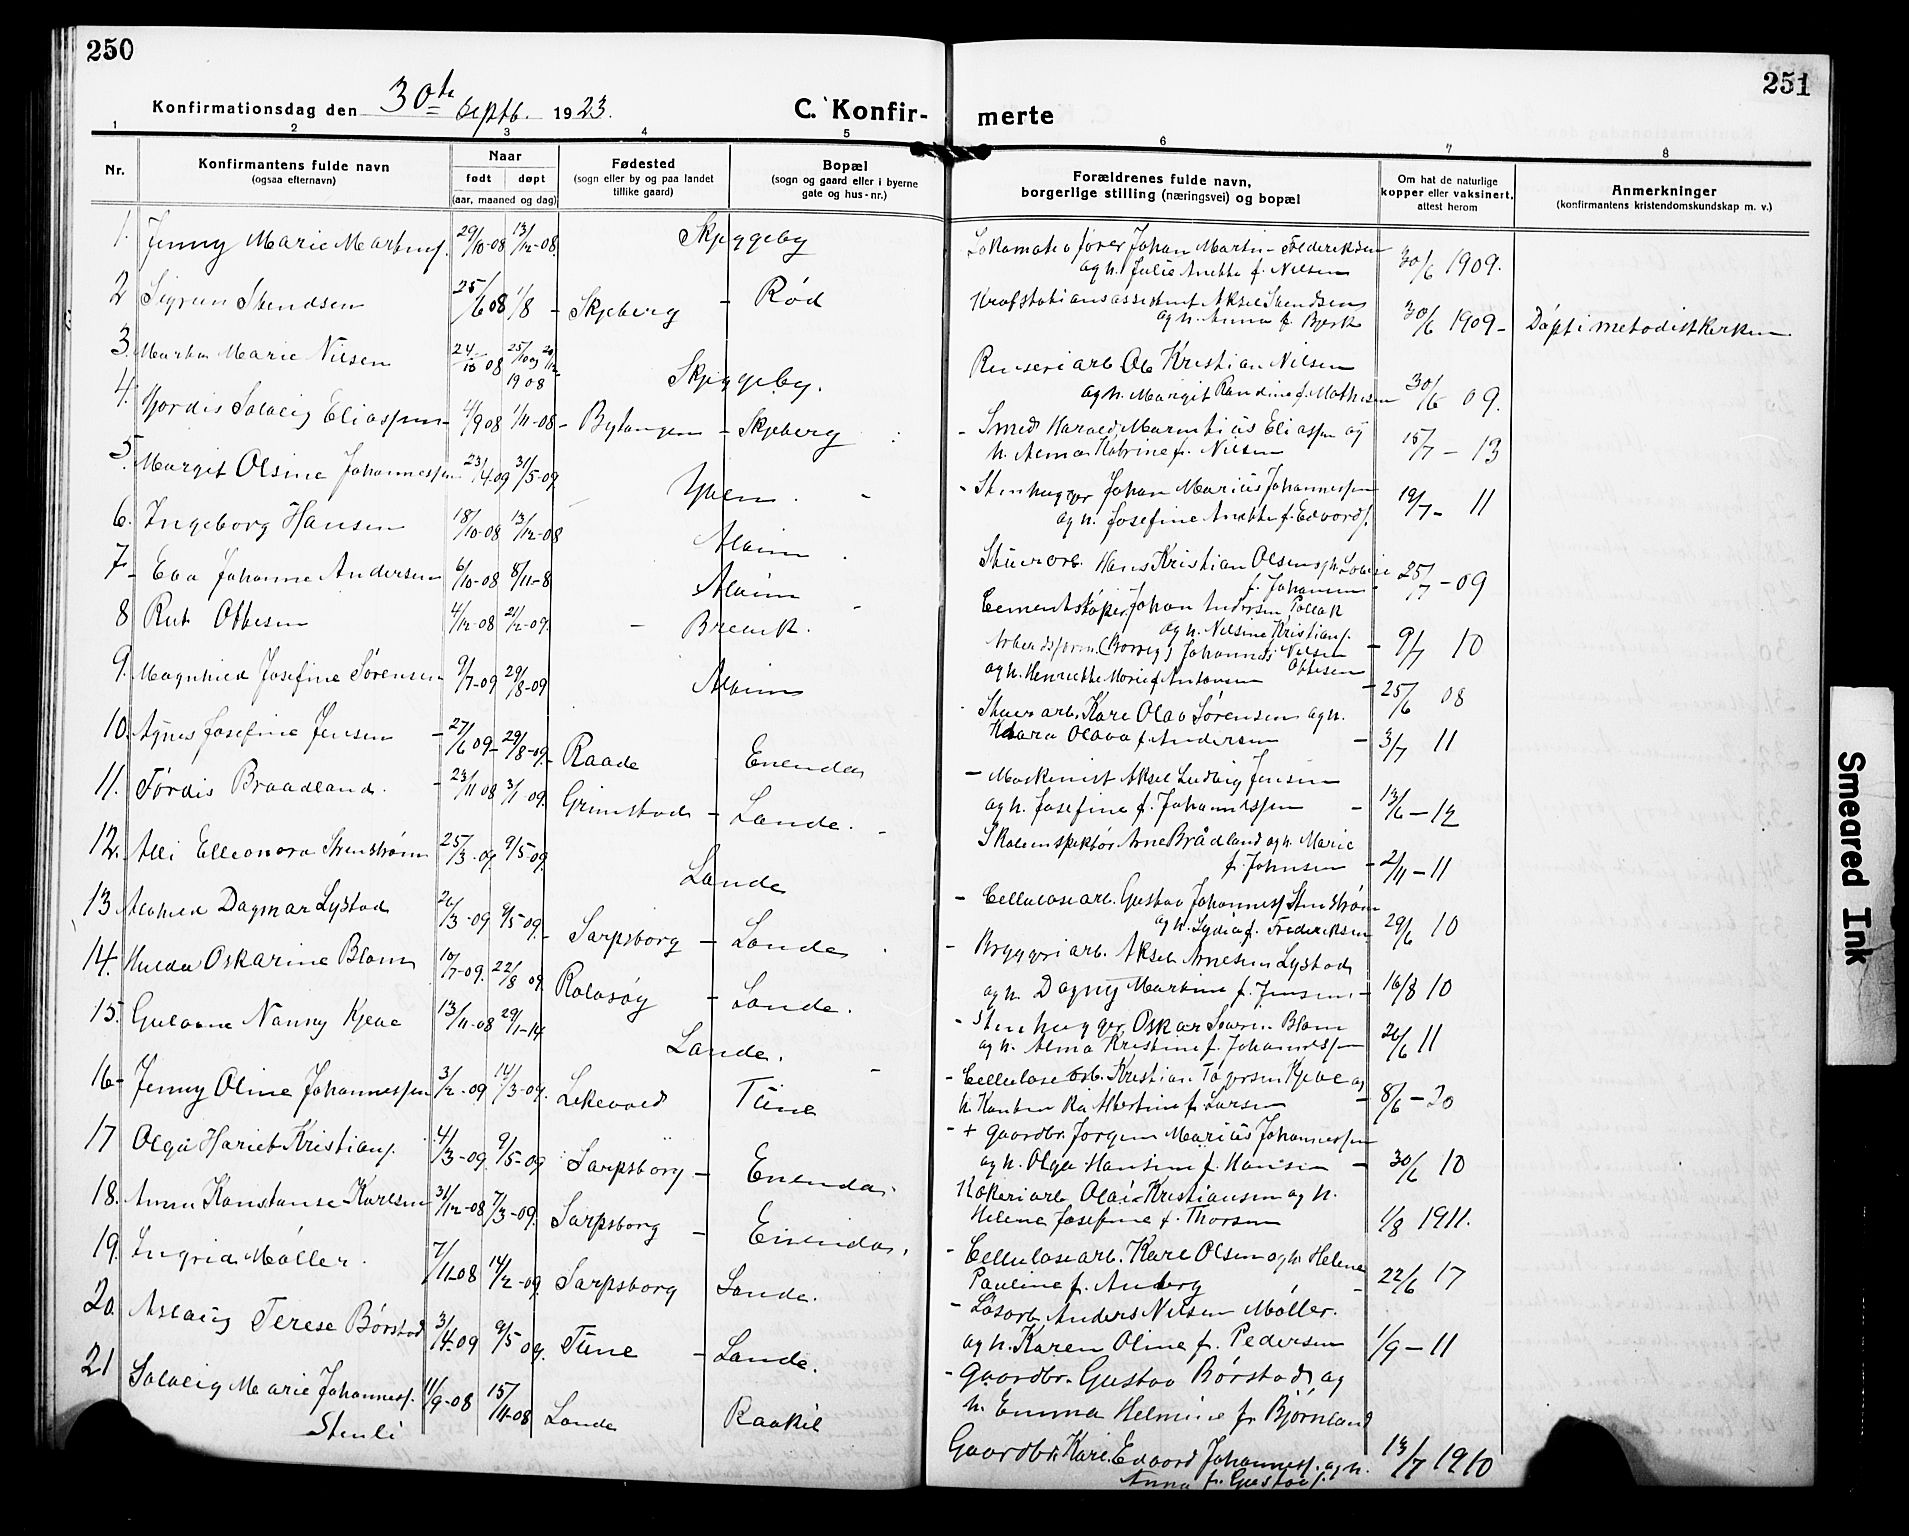 250
251
Konfirmationsdag den 30te Septb. 1923.
C. Konfir-
merte
1 2 3 4 5 6 7 8
Nr.
Konfirmantens fulde navn
(ogsaa efternavn)
Naar
født døpt
(aar, maaned og dag)
Fødested
(sogn eller by og paa landet
tillike gaard)
Bopæl
(sogn og gaard eller i byerne
gate og hus-nr.)
Forældrenes fulde navn,
borgerlige stilling (næringsvei) og bopæl
Om hat de naturlige
kopper eller vaksinert,
attest herom
Anmerkninger
(konfirmantens kristendomskundskap m. v.)
1. Jenny Marie Martins. 29/10-08 13/12-08. Skjeggeby
Lokomotivfører Johan Martin Frederiksen
og h. Julie Anette f. Nilsen 30/6 1909.
2 Sigrun Svendsen 25/6 08 1/8 - Skjeberg - Rød
Krafstationsassistent Aksel Svendsen
og h. Anna f. Bjerk 30/6 1909- Døpt i metodistkirken
3. Martha Marie Nilsen 24/10 08 1908 Skjeggeby.
Renseriarb. Ole Kristian Nilsen
og h. Margit Randine f. Mathisen 30/6 09.
4. Hjordis Solveig Eliassen 4/9 08 1/11-08 - Bytangen - Skjeberg
- Smed Harald Marentius Eliassen og
h. Alma Katrine f. Nilsen 15/7 - 13
5. Margit Olsine Johannessen 23/4 09 31/5-09 Yven.
- Stenhugger Johan Marius Johannessen
og h. Josefine Anette f. Edvards. 19/7- 11
6. Ingeborg Hansen 18/10-08 13/12-08 Alvim
Stuerarb. Hans Kristian Olsen og h. Lovise
f. Johansen 25/7 - 09
7- Eva Johanne Andersen 6/10-08 8/11-8 Alvim
Cementstøper Johan Andersen Pollak
og h. Nilsine Kristians. - 9/7 10
8 Rut Ottesen 4/12-08 21/2-09. - Brevik.
Arbeidsform. (Borreg) Johannes Nilsen
Ottesen
og h. Henriette Marie f. Antonsen - 25/6 08
9. Magnhild Josefine Sørensen 9/7-09 29/8-09 Alvim
Stuerarb. Karl Olav Sørensen og h.
Klara Olava f. Andersen - 3/7 11
10. Agnes Josefine Jensen - 27/6 09- 29/8-09. Raade Enenda
- Maskinist Aksel Ludvig Jensen
og h. Josefine f. Johannessen - 13/6 - 12
11. Tørdis Braadland. - 23/11 08 3/1 09. Grimstad - Lande.
Skoleinspektør Arne Brådland og h. Marie
f. Johnsen - 2/11 - 11
12. Alli Elleonora Stenstrøm 25/3-09 9/5-09. Lande
- Cellulosearb. Gustav Johanness. Stenstrøm
og h. Lydia f. Frederiksen 29/6 10
13 Alvhild Dagmar Lystad 26/3-09 9/5-09. - Sarpsborg - Lande
- Bryggeriarb. Aksel Arnesen Lystad
og h. Dagny Martine f. Jensen. - 16/8 10
14. Hulda Oskarine Blom 10/7-09. 22/8 09. Rolvsøy - Lande.
- Stenhugger Oskar Severin Blom
og h. Alma Kristine f. Johannessen 26/6 11
15. Gudrun Nanny Kjeve 13/11-08 29/1-14 Lande.
- Cellulosearb. Kristian Kjeve og
h. Albertine f. Larsen - 8/6 - 20
16- Jenny Oline Johannessen 3/2-09 14/3-09. Lekevold Tune
- + Gaardbr. Jørgen Marius Johannessen
og h. Olga Hansine f. Hansen - 30/6 10
17 Olga Hariet Kristians. 4/3-09 9/5-09 Sarpsborg - Enenda.
Kokeriarb. Olai Kristiansen og h.
Helene Josefine f. Thorsen 1/8 1911.
18. Anna Konstanse Karlsen 31/12-08 7/3-09. Sarpsborg - Enenda.
- Cellulosearb. Karl Olsen og h. Helene
Pauline f. Anberg - 22/6 17
19. Ingrid Møller. 7/11-08 14/2-09. Sarpsborg Lande.
- Løsarb. Anders Nilsen Møller.
og h. Karen Oline f. Pedersen 1/9 - 11
20. Aslaug Terese Børstad 3/4-09 9/5 09. Tune - Lande.
- Gaardbr. Gustav Børstad og
h. Emma Helmine f. Bjørnland
21 Solveig Marie Johanness. 11/9-08 15/11-08 Lande Raakil
Stenli
Gaardbr. Karl Edvard Johanness. og h.
Anna f. Gustavs. 13/7 1910
Smeared Ink